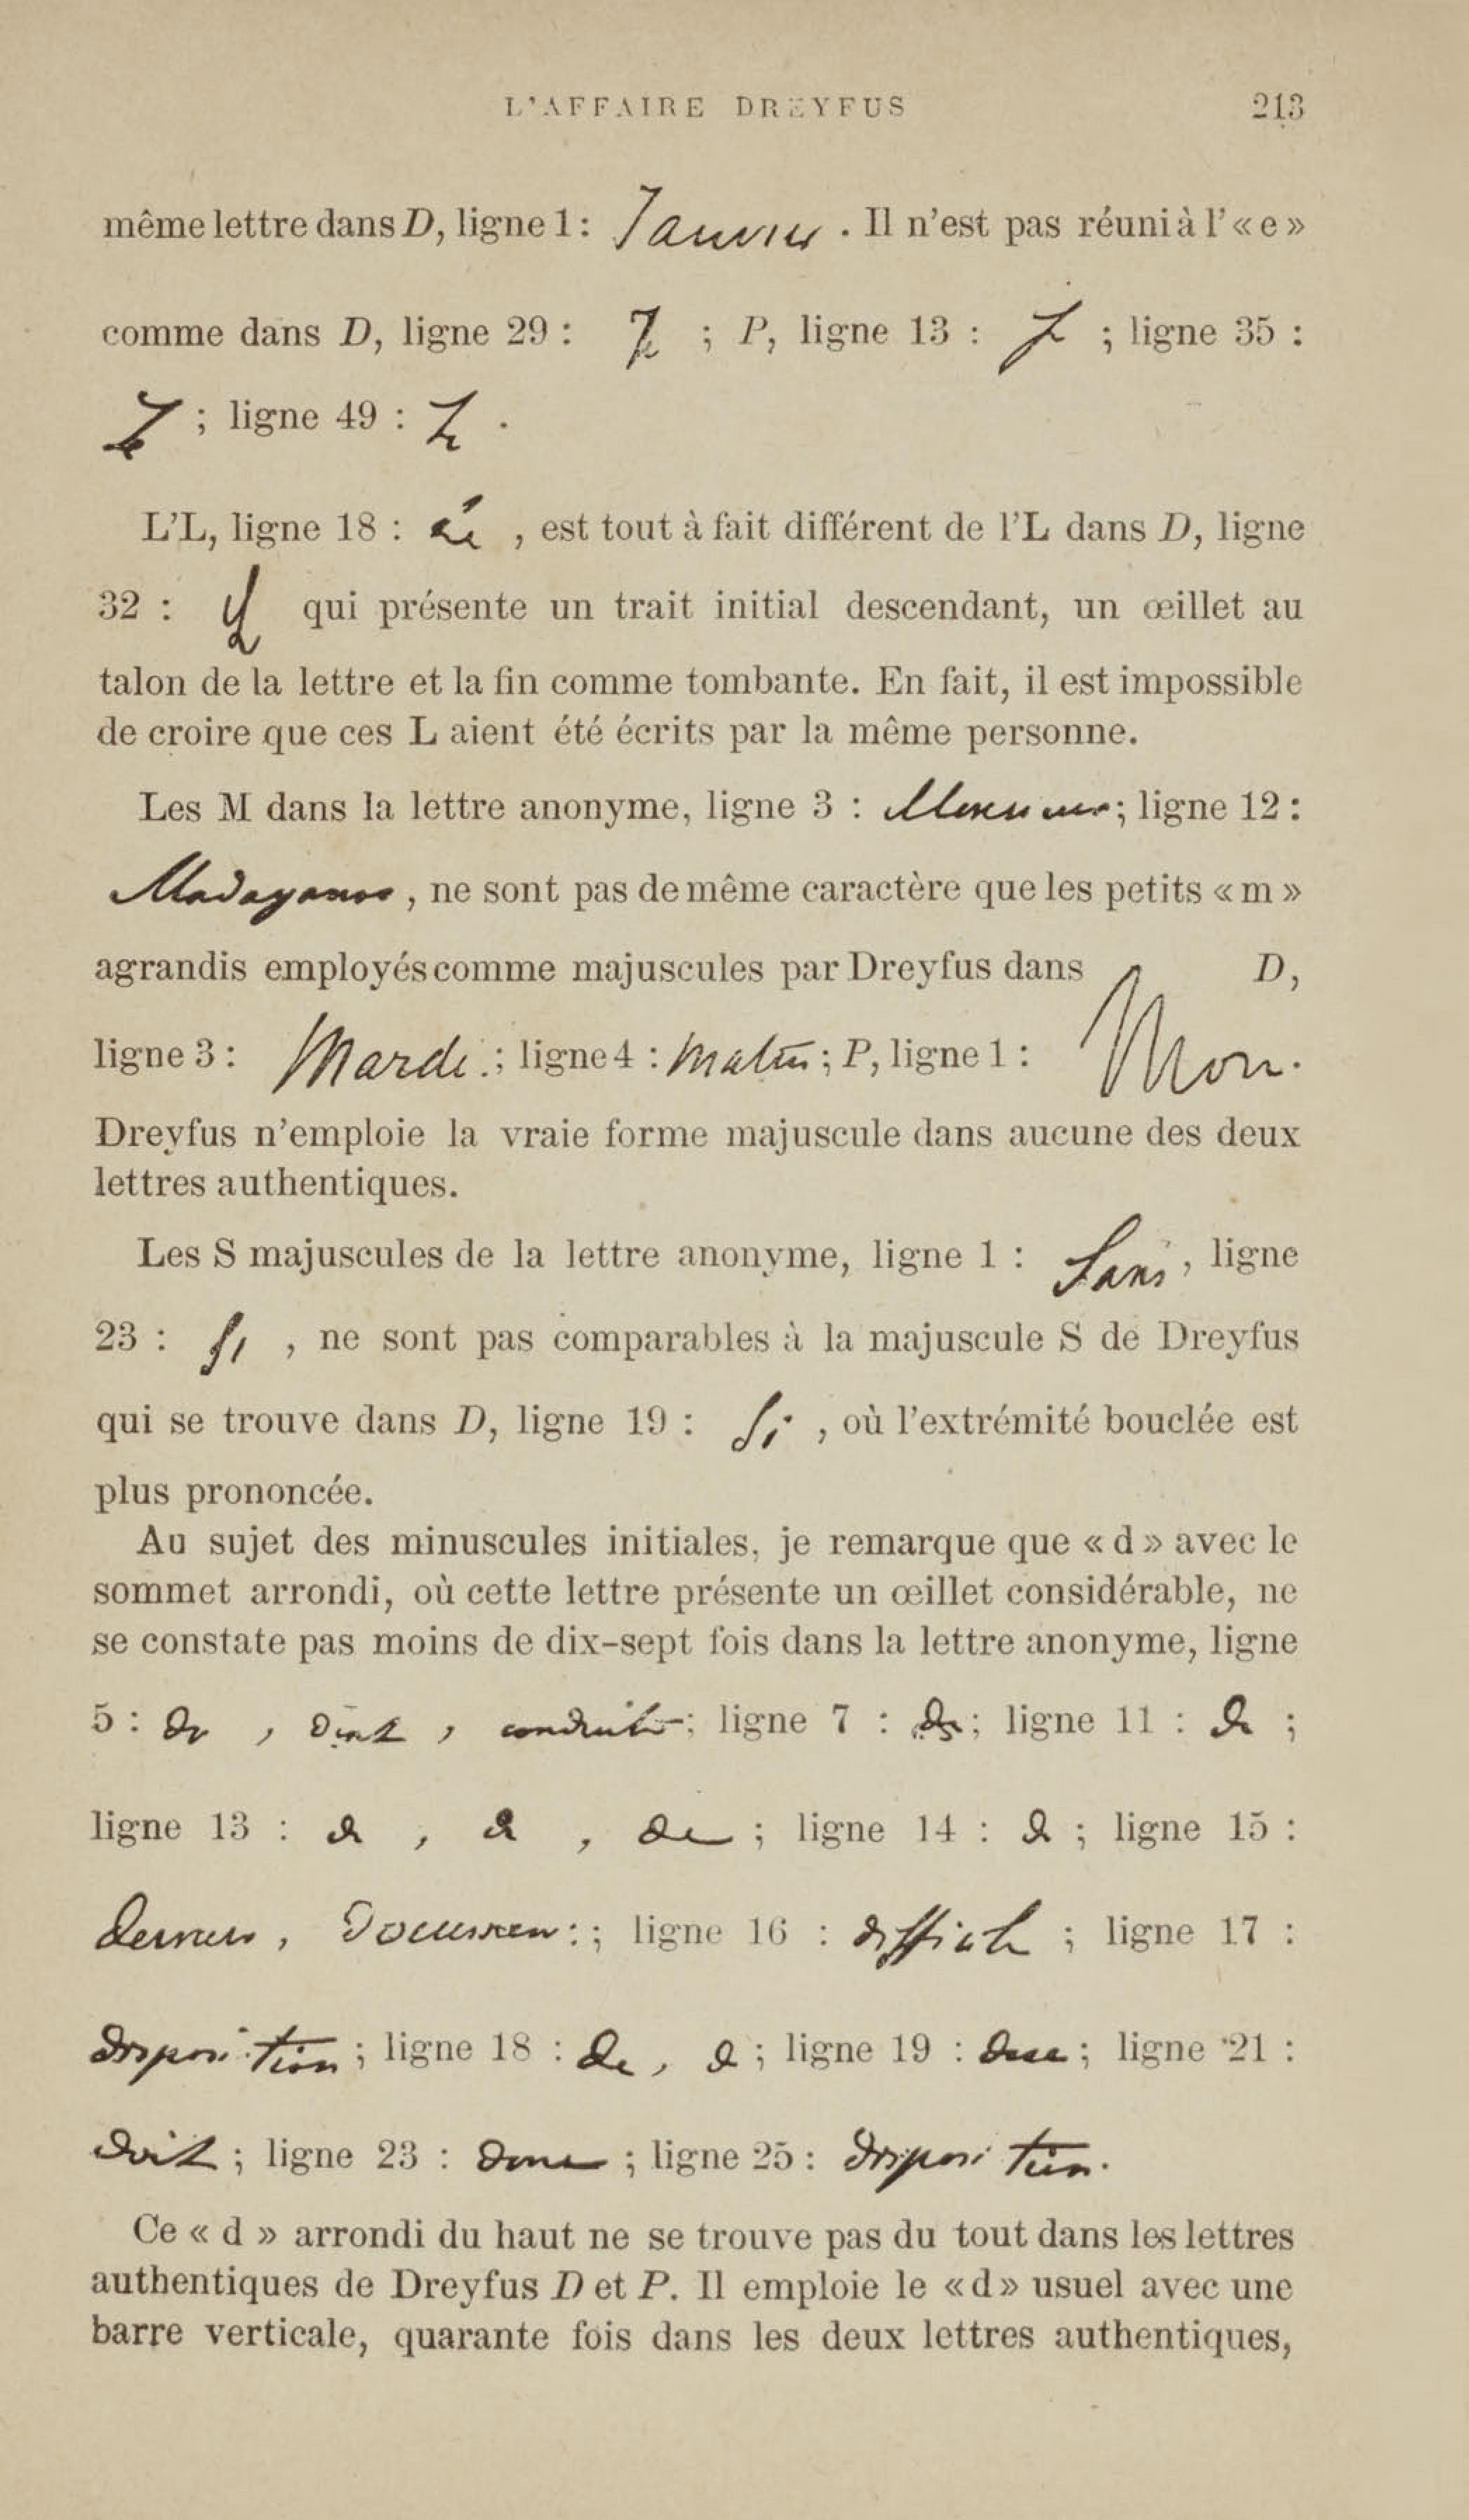 L'AFFAIRE DREYFUS 213
même lettre dans D, ligne 1 : Janvier . Il n'est pas réuni à l' « e »
comme dans D, ligne 29 : ; P, ligne 13 : ; ligne 35 :
; ligne 49 : .
L'L, ligne 18 : , est tout à fait différent de l'L dans D, ligne
32 : qui présente un trait initial descendant, un œillet au
talon de la lettre et la fin comme tombante. En fait, il est impossible
de croire que ces L aient été écrits par la même personne.
Les M dans la lettre anonyme, ligne 3 : Monsieur ; ligne 12 :
Madagascar , ne sont pas de même caractère que les petits « m »
agrandis employés comme majuscules par Dreyfus dans D,
ligne 3 : Mardi . ; ligne 4 : matin ; P, ligne 1 : Mon.
Dreyfus n'emploie la vraie forme majuscule dans aucune des deux
lettres authentiques.
Les S majuscules de la lettre anonyme, ligne 1 : Sans , ligne
23 : Si , ne sont pas comparables à la majuscule S de Dreyfus
qui se trouve dans D, ligne 19 : Si , où l'extrémité bouclée est
plus prononcée.
Au sujet des minuscules initiales, je remarque que « d » avec le
sommet arrondi, où cette lettre présente un œillet considérable, ne
se constate pas moins de dix-sept fois dans la lettre anonyme, ligne
5 : , , conduite ; ligne 7 : ; ligne 11 : de ;
ligne 13 : , , de ; ligne 14 : ; ligne 15 :
dernier , documen : ; ligne 16 : difficile ; ligne 17 :
disposition ; ligne 18 : de , ; ligne 19 : ; ligne 21 :
doit ; ligne 23 : donc ; ligne 25 : disposition .
Ce « d » arrondi du haut ne se trouve pas du tout dans les lettres
authentiques de Dreyfus D et P. Il emploie le « d » usuel avec une
barre verticale, quarante fois dans les deux lettres authentiques,